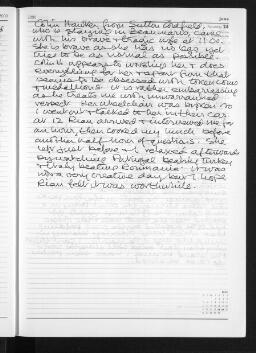 Colin Hawker from Sutton Coldfield,
who is staying in Beaumaris, came
with his brave & tragic wife at 11.00.
She is brave as she has no legs yet
tries to be as normal as possible.
Colin appears to worship her & does
everything for her & apart from that
seems to be obsessed with
& medallions. It is rather embarrassing
as he treats me with unwarranted
respect. Her wheelchair was broken so
I went out & talked to her in their car.
At 12 Kian arrived & interviewed me for
an hour, then cooked my lunch before
another half-hour of questions. She
left just before & I relaxed afterwards
by watching Portugal beating Turkey
& Italy beating Romania. It was
not a very creative day but I hope
Kian felt it was worthwhile.